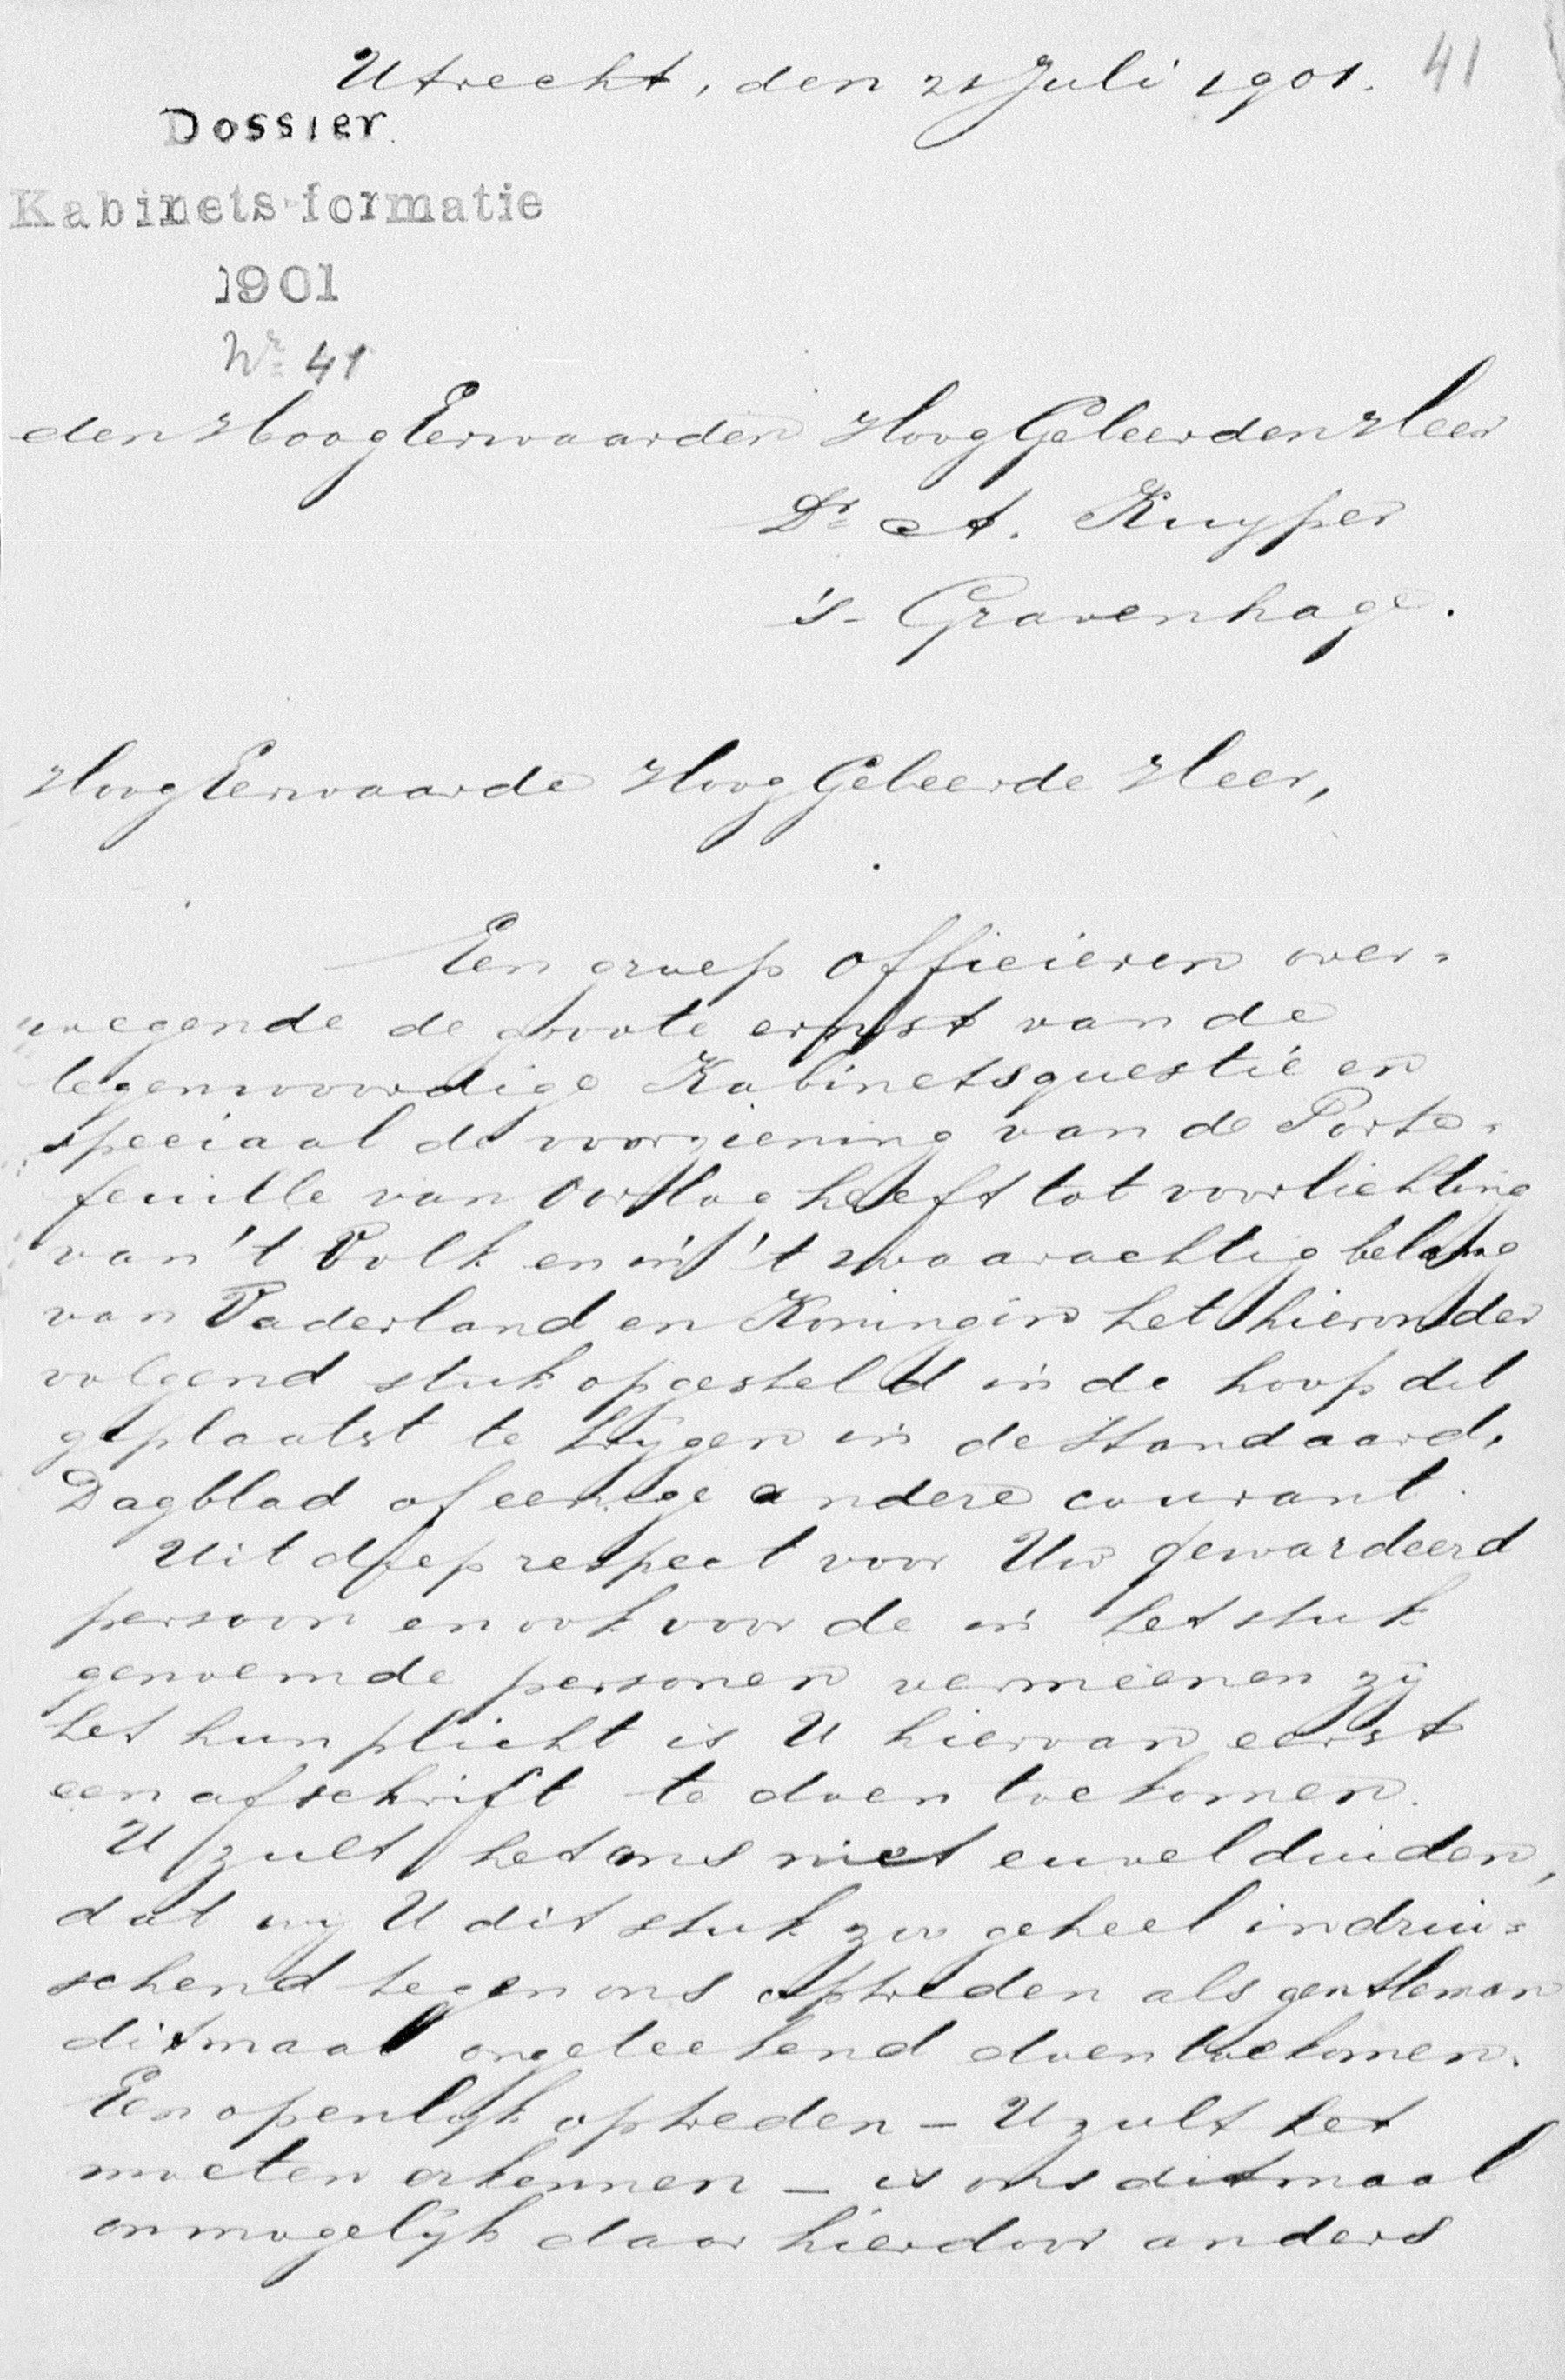 Utrecht, den 21 Juli 1901.
41
Dossier.
Kabinets-formatie
1901
Nr 41
den HoogEerwaarden HoogGeleerden Heer
Dr A. Kuyper
's-Gravenhage.
HoogEerwaarde HoogGeleerde Heer,
Een groep officieren over=
wegende de groote ernst van de
tegenwoordige Kabinetsquestie en
speciaal de voorziening van de Porte=
feuille van Oorlog heeft tot voorlichting
van 't Volk en in 't waarachtig belang
van Vaderland en Koningin het hieronder
volgend stuk opgesteld in de hoop dit
geplaatst te krijgen in de Standaard,
Dagblad of eenige andere courant.
Uit diep respect voor Uw gewardeerd
persoon en ook voor de in het stuk
genoemde personen vermeenen zij
het hun plicht is U hiervan eerst
een afschrift te doen toekomen.
U zult het ons niet euvel duiden,
dat wij U dit stuk zoo geheel indrui=
schend tegen ons optreden als gentleman
ditmaal ongeteekend doen toekomen.
Een openlijk optreden - U zult het
moeten erkennen - is ons ditmaal
onmogelijk daar hierdoor anders